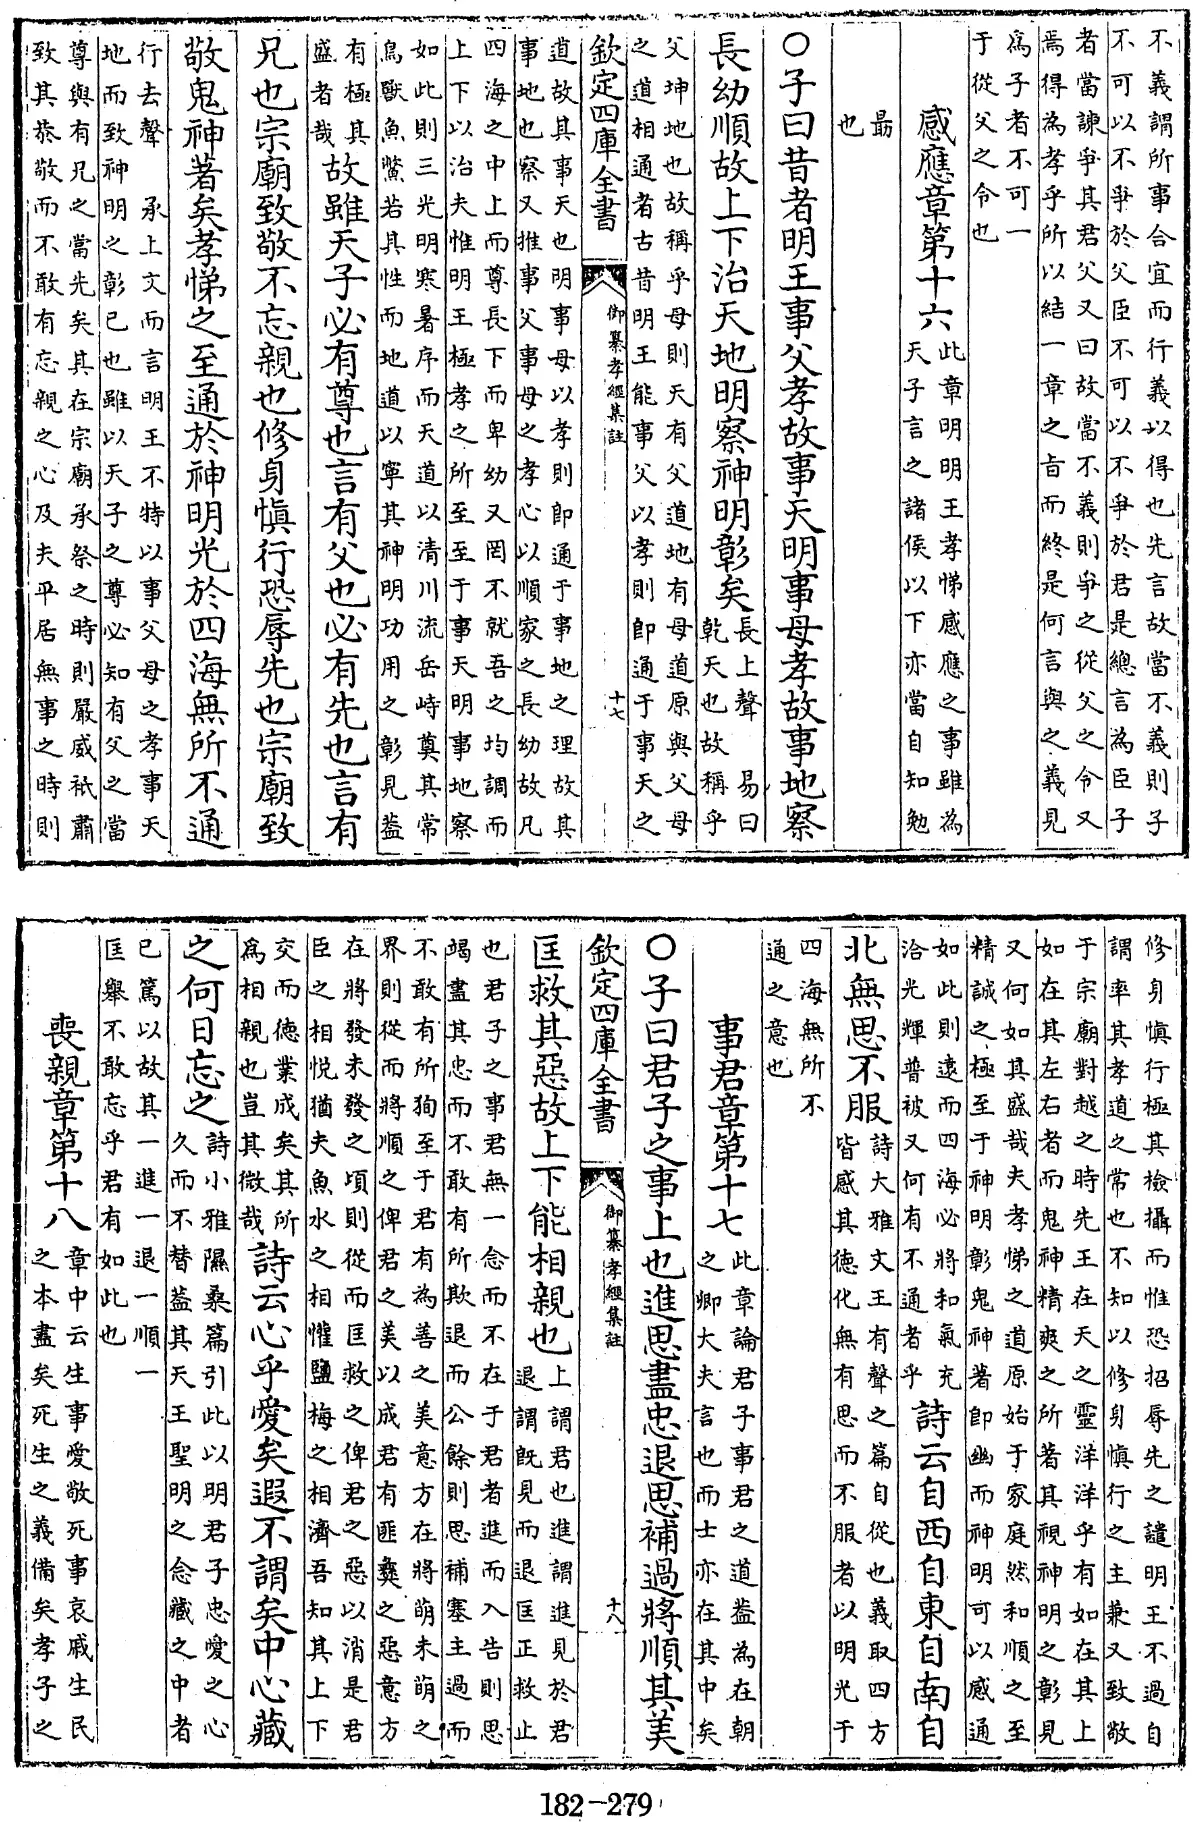 不義謂所事合宜而行義以得也先言故當不義則子
不可以不爭於父臣不可以不爭於君是總言為臣子
者當諫爭其君父又曰故當不義則爭之從父之令又
焉得為孝乎所以結一章之旨而終是何言與之義見
為子者不可一
于從父之令也
感應章第十六
此章明明王孝悌感應之事雖為
天子言之諸侯以下亦當自知勉
勗
也
○子曰昔者明王事父孝故事天明事母孝故事地察
長幼順故上下治天地明察神明彰矣
長上聲 易曰
乾天也故稱乎
父坤地也故稱乎母則天有父道地有母道原與父母
之道相通者古昔明王能事父以孝則即通于事天之
欽定四庫全書
御纂孝經集註
十七
道故其事天也明事母以孝則即通于事地之理故其
事地也察又推事父事母之孝心以順家之長幼故凡
四海之中上而尊長下而卑幼又罔不就吾之均調而
上下以治夫惟明王極孝之所至至于事天明事地察
如此則三光明寒暑序而天道以清川流岳峙奠其常
鳥獸魚鱉若其性而地道以寧其神明功用之彰見葢
有極其
盛者哉
故雖天子必有尊也言有父也必有先也言有
兄也宗廟致敬不忘親也修身慎行恐辱先也宗廟致
敬鬼神著矣孝悌之至通於神明光於四海無所不通
行去聲 承上文而言明王不特以事父母之孝事天
地而致神明之彰已也雖以天子之尊必知有父之當
尊與有兄之當先矣其在宗廟承祭之時則嚴威祇肅
致其恭敬而不敢有忘親之心及夫平居無事之時則
修身慎行極其檢攝而惟恐招辱先之譴明王不過自
謂率其孝道之常也不知以修身慎行之主兼又致敬
于宗廟對越之時先王在天之靈洋洋乎有如在其上
如在其左右者而鬼神精爽之所著其視神明之彰見
又何如其盛哉夫孝悌之道原始于家庭然和順之至
精誠之極至于神明彰鬼神著即幽而神明可以感通
如此則遠而四海必將和氣充
洽光輝普被又何有不通者乎
詩云自西自東自南自
北無思不服
詩大雅文王有聲之篇自從也義取四方
皆感其德化無有思而不服者以明光于
四海無所不
通之意也
事君章第十七
此章論君子事君之道葢為在朝
之卿大夫言也而士亦在其中矣
○子曰君子之事上也進思盡忠退思補過將順其美
欽定四庫全書
御纂孝經集註
十八
匡救其惡故上下能相親也
上謂君也進謂進見於君
退謂既見而退匡正救止
也君子之事君無一念而不在于君者進而入告則思
竭盡其忠而不敢有所欺退而公餘則思補塞主過而
不敢有所狥至于君有為善之美意方在將萌未萌之
界則從而將順之俾君之美以成君有匪彝之惡意方
在將發未發之頃則從而匡救之俾君之惡以消是君
臣之相悅猶夫魚水之相懽鹽梅之相濟吾知其上下
交而德業成矣其所
為相親也豈其微哉
詩云心乎愛矣遐不謂矣中心藏
之何日忘之
詩小雅隰桑篇引此以明君子忠愛之心
久而不替葢其天王聖明之念藏之中者
已篤以故其一進一退一順一
匡舉不敢忘乎君有如此也
喪親章第十八
章中云生事愛敬死事哀戚生民
之本盡矣死生之義備矣孝子之
182-279